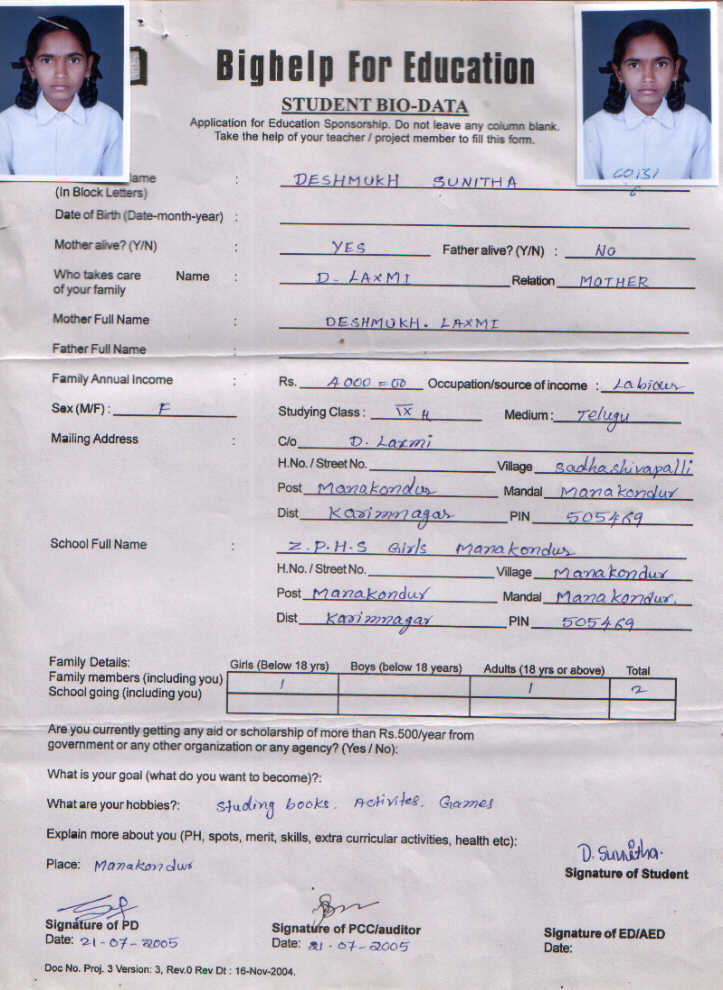 Bighelp For Education
STUDENT BIO-DATA
Application for Education Sponsorship. Do not leave any column blank.
Take the help of your teacher / project member to fill this form.
(In Block Letters) : DESHMUKH SUNITHA
Date of Birth (Date-month-year) :
Mother alive? (Y/N) : YES Father alive? (Y/N) : NO
Who takes care of your family Name : D. LAXMI Relation MOTHER
Mother Full Name : DESHMUKH. LAXMI
Father Full Name :
Family Annual Income : Rs. 4000=00 Occupation/source of income : Labiour
Sex (M/F) : F Studying Class : IX H Medium : Telugu
Mailing Address : C/o D. Laxmi
H.No. / Street No. Village Sadhashivapalli
Post Manakondur Mandal Manakondur
Dist Karimnagar PIN 505469
School Full Name : Z.P.H.S Girls Manakondur
H.No. / Street No. Village Manakondur
Post Manakondur Mandal Manakondur.
Dist Karimnagar PIN 505469
Family Details: Girls (Below 18 yrs) Boys (below 18 years) Adults (18 yrs or above) Total
Family members (including you) 1 1 2
School going (including you)
Are you currently getting any aid or scholarship of more than Rs.500/year from
government or any other organization or any agency? (Yes / No):
What is your goal (what do you want to become)?:
What are your hobbies?: Studing books. Activites. Games
Explain more about you (PH, spots, merit, skills, extra curricular activities, health etc):
Place: Manakondur D. Sunitha.
Signature of Student
Signature of PD Signature of PCC/auditor Signature of ED/AED
Date: 21-07-2005 Date: 21-07-2005 Date:
Doc No. Proj. 3 Version: 3, Rev.0 Rev Dt : 16-Nov-2004.